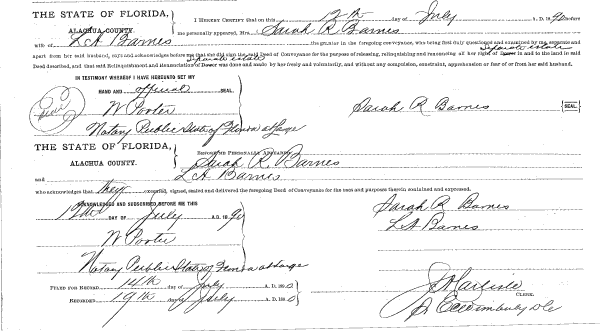 THE STATE OF FLORIDA,
ALACHUA COUNTY.
I HEREBY CERTIFY that on this 12th day of July A. D. 1890 before
me personally appeared, Mrs. Sarah R Barnes
wife of L A Barnes the grantor in the foregoing conveyance, who being first duly questioned and examined by me, separate and
apart from her said husband, says and acknowledges before me that she did sign the said Deed of Conveyance for the purpose of releasing, relinquishing and renouncing all her right of Dower separate estate in and to the land in said
Deed described, and that said Relinquishment and Renunciation of Dower separate estate was done and made by her freely and voluntarily, and without any compulsion, constraint, apprehension or fear of or from her said husband.
IN TESTIMONY WHEREOF I HAVE HEREUNTO SET MY
HAND AND official SEAL.
Seal
W Porter
Notary Public State of Florida at Large
Sarah R Barnes (SEAL)
THE STATE OF FLORIDA,
ALACHUA COUNTY.
BEFORE ME PERSONALLY APPEARED
Sarah R. Barnes
and L A Barnes
who acknowledges that they executed, signed, sealed and delivered the foregoing Deed of Conveyance for the uses and purposes therein contained and expressed.
ACKNOWLEDGED AND SUBSCRIBED BEFORE ME THIS
12th DAY OF July A. D. 1890
Sarah R Barnes
L A Barnes
W Porter
Notary Public State of Florida at Large
FILED FOR RECORD 14th day of July A. D. 1890
RECORDED 19th day of July A. D. 1890
J A Carlisle
CLERK.